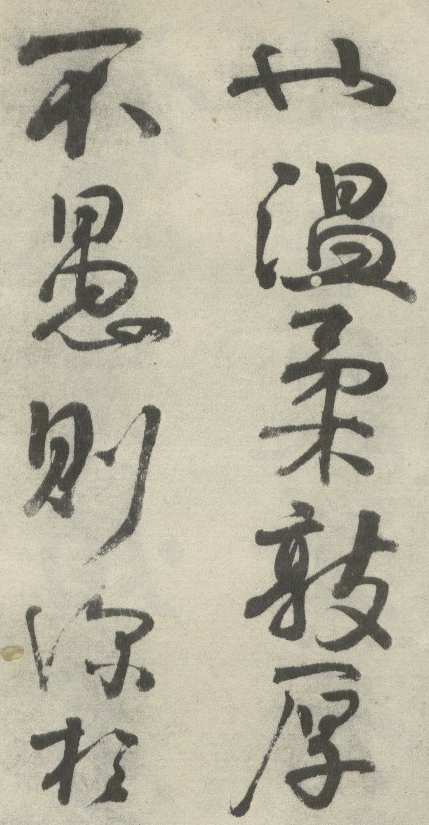 也温柔敦厚
不愚則深於